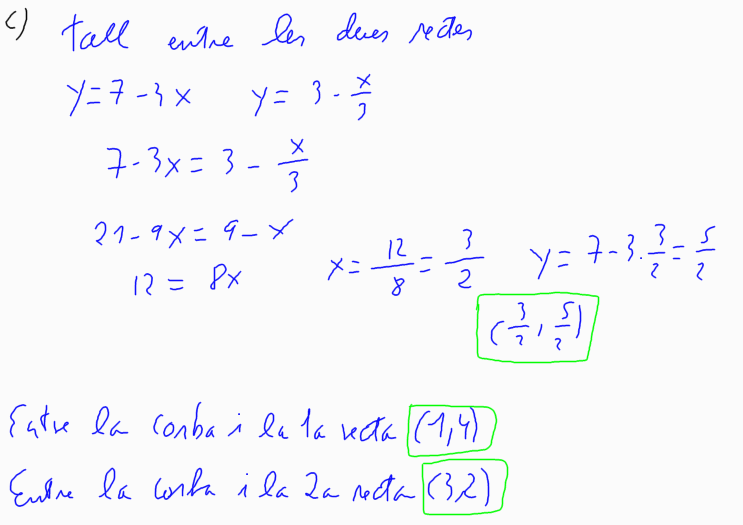 c) Tall entre les dues rectes
y=7-3x y= 3 - x/3
7-3x = 3 - x/3
21-9x = 9-x
12 = 8x x= 12/8 = 3/2 y= 7-3·3/2 = 5/2
(3/2, 5/2)
Entre la corba i la 1a recta (1,4)
Entre la corba i la 2a recta (3,2)